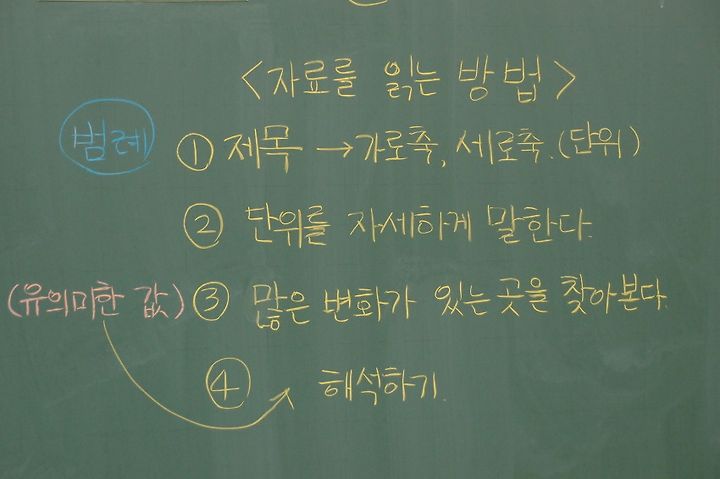 <자료를 읽는 방법>
범례 ① 제목 → 가로축, 세로축. (단위)
② 단위를 자세하게 말한다.
(유의미한 값) ③ 많은 변화가 있는 곳을 찾아본다.
④ 해석하기.